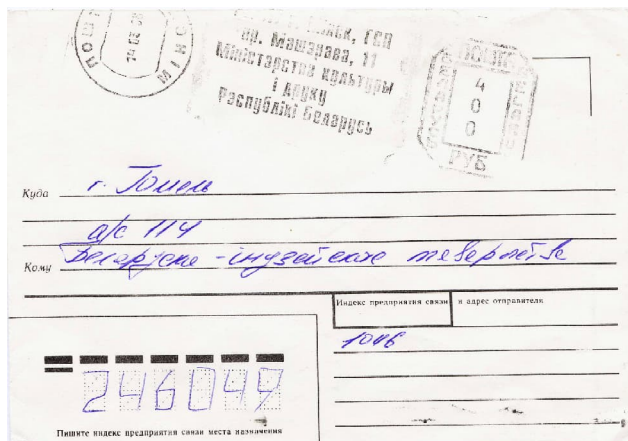 ПОШТА
МІНСК
пр. Машэрава, 11
Міністэрства культуры
і друку
Рэспублікі Беларусь
400
РУБ
Куда г. Гомель
а/с 114
Кому Беларуска-інузейскае таварыства
Индекс предприятия связи и адрес отправителя
246049
Пишите индекс предприятия связи места назначения